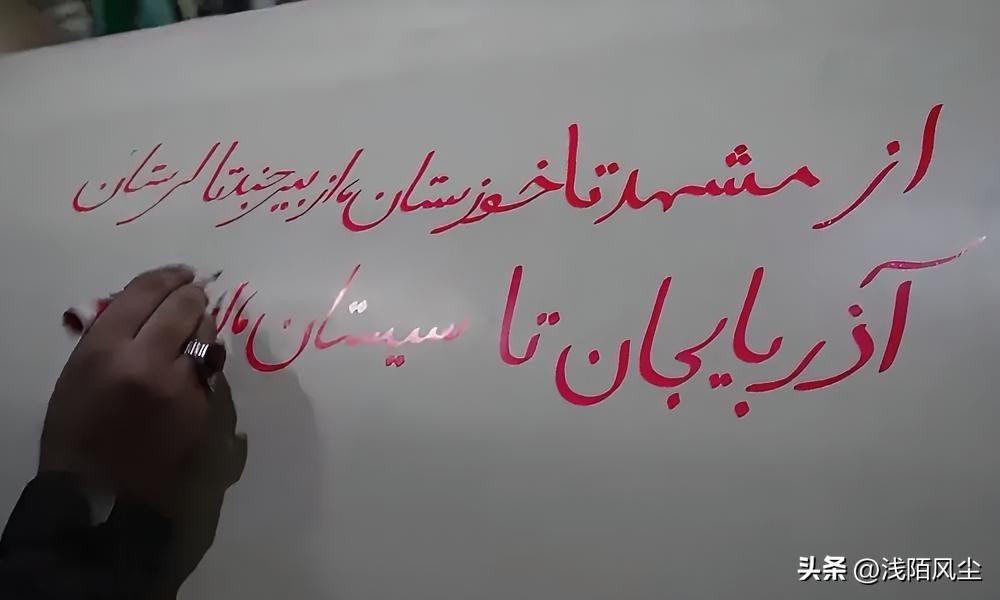 از مشهد تا خوزستان، از بیرجند تا لرستان
آذربایجان تا سیستان، از
头条 @浅陌风尘